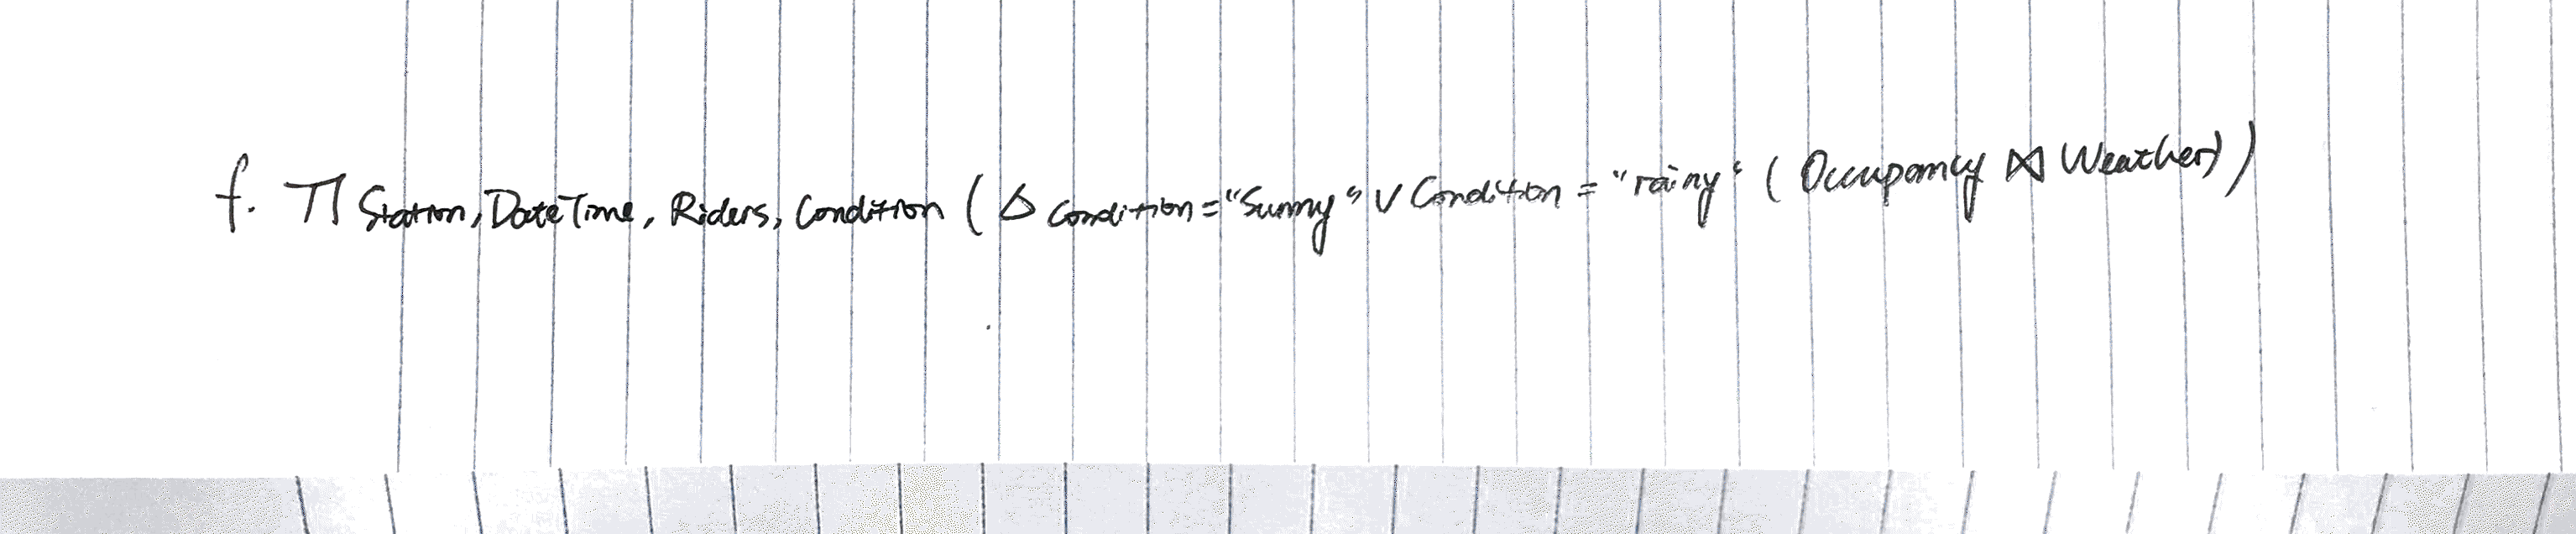 f. Π Station, DateTime, Riders, Condition ( Δ Condition = "Sunny" ∨ Condition = "rainy" ( Occupancy ⋈ Weather) )